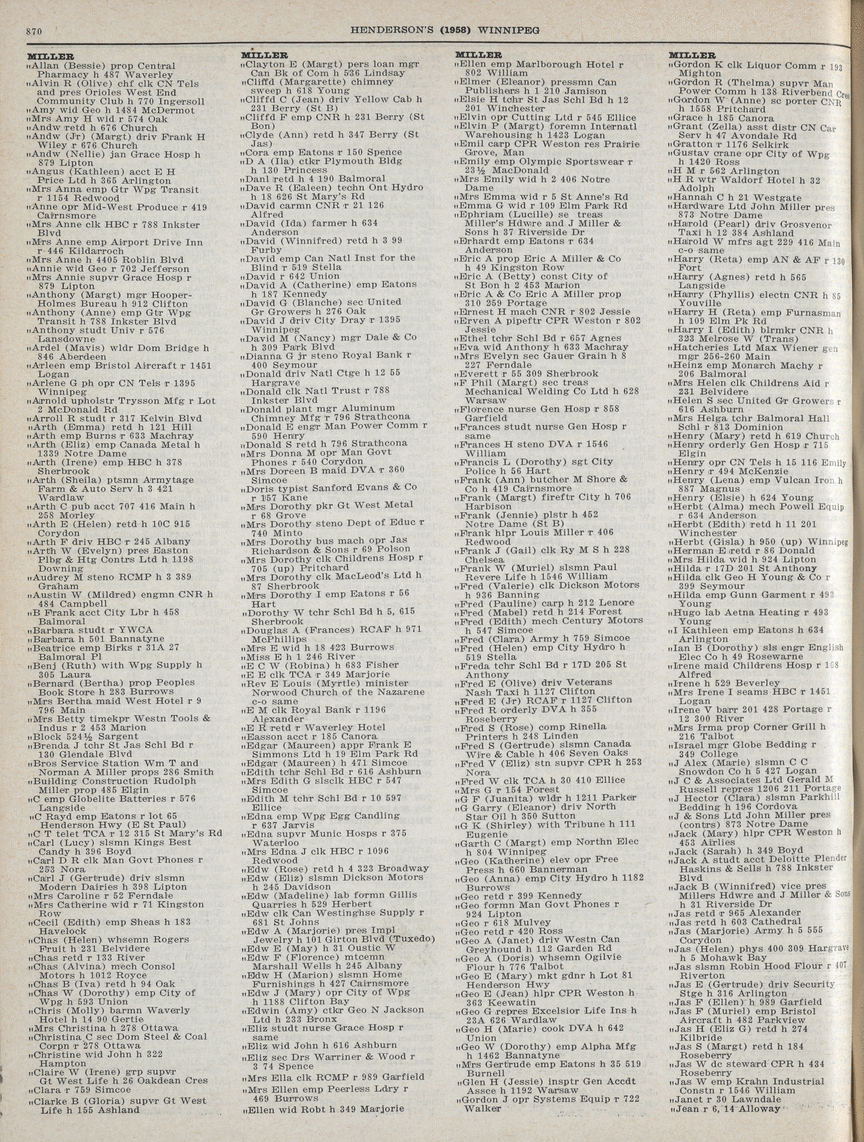 870
HENDERSON'S (1958) WINNIPEG
MILLER
„Allan (Bessie) prop Central
Pharmacy h 487 Waverley
„Alvin R (Olive) chf clk CN Tels
and pres Orioles West End
Community Club h 770 Ingersoll
„Amy wid Geo h 1484 McDermot
„Mrs Amy H wid r 574 Oak
„Andw retd h 676 Church
„Andw (Jr) (Margt) driv Frank H
Wiley r 676 Church
„Andw (Nellie) jan Grace Hosp h
879 Lipton
„Angus (Kathleen) acct E H
Price Ltd h 365 Arlington
„Mrs Anna emp Gtr Wpg Transit
r 1154 Redwood
„Anne opr Mid-West Produce r 419
Cairnsmore
„Mrs Anne clk HBC r 788 Inkster
Blvd
„Mrs Anne emp Airport Drive Inn
r 446 Kildarroch
„Mrs Anne h 4405 Roblin Blvd
„Annie wid Geo r 702 Jefferson
„Mrs Annie supvr Grace Hosp r
879 Lipton
„Anthony (Margt) mgr Hooper-
Holmes Bureau h 912 Clifton
„Anthony (Anne) emp Gtr Wpg
Transit h 788 Inkster Blvd
„Anthony studt Univ r 576
Lansdowne
„Ardel (Mavis) wldr Dom Bridge h
846 Aberdeen
„Arleen emp Bristol Aircraft r 1451
Logan
„Arlene G ph opr CN Tels r 1395
Winnipeg
„Arnold upholstr Trysson Mfg r Lot
2 McDonald Rd
„Arroll R studt r 317 Kelvin Blvd
„Arth (Emma) retd h 121 Hill
„Arth emp Burns r 633 Machray
„Arth (Eliz) emp Canada Metal h
1339 Notre Dame
„Arth (Irene) emp HBC h 378
Sherbrook
„Arth (Sheila) ptsmn Armytage
Farm & Auto Serv h 3 421
Wardlaw
„Arth C pub acct 707 416 Main h
258 Morley
„Arth E (Helen) retd h 10C 915
Corydon
„Arth F driv HBC r 245 Albany
„Arth W (Evelyn) pres Easton
Plbg & Htg Contrs Ltd h 1198
Downing
„Audrey M steno RCMP h 3 389
Graham
„Austin W (Mildred) engmn CNR h
484 Campbell
„B Frank acct City Lbr h 458
Balmoral
„Barbara studt r YWCA
„Barbara h 501 Bannatyne
„Beatrice emp Birks r 31A 27
Balmoral Pl
„Benj (Ruth) with Wpg Supply h
305 Laura
„Bernard (Bertha) prop Peoples
Book Store h 283 Burrows
„Mrs Bertha maid West Hotel r 9
796 Main
„Mrs Betty timekpr Westn Tools &
Indus r 2 453 Marion
„Block 524½ Sargent
„Brenda J tchr St Jas Schl Bd r
130 Glendale Blvd
„Bros Service Station Wm T and
Norman A Miller props 286 Smith
„Building Construction Rudolph
Miller prop 485 Elgin
„C emp Globelite Batteries r 576
Langside
„C Rayd emp Eatons r lot 65
Henderson Hwy (E St Paul)
„C T telet TCA r 12 315 St Mary's Rd
„Carl (Lucy) slsmn Kings Best
Candy h 396 Boyd
„Carl D R clk Man Govt Phones r
253 Nora
„Carl J (Gertrude) driv slsmn
Modern Dairies h 398 Lipton
„Mrs Caroline r 52 Ferndale
„Mrs Catherine wid r 71 Kingston
Row
„Cecil (Edith) emp Sheas h 183
Havelock
„Chas (Helen) whsemn Rogers
Fruit h 231 Belvidere
„Chas retd r 133 River
„Chas (Alvina) mech Consol
Motors h 1012 Royce
„Chas B (Iva) retd h 94 Oak
„Chas W (Dorothy) emp City of
Wpg h 593 Union
„Chris (Molly) barmn Waverly
Hotel h 14 90 Gertie
„Mrs Christina h 278 Ottawa
„Christina C sec Dom Steel & Coal
Corpn r 278 Ottawa
„Christine wid John h 322
Hampton
„Claire W (Irene) grp supvr
Gt West Life h 26 Oakdean Cres
„Clara r 759 Simcoe
„Clarke B (Gloria) supvr Gt West
Life h 155 Ashland
MILLER
„Clayton E (Margt) pers loan mgr
Can Bk of Com h 536 Lindsay
„Cliffd (Margarette) chimney
sweep h 618 Young
„Cliffd C (Jean) driv Yellow Cab h
231 Berry (St B)
„Cliffd F emp CNR h 231 Berry (St
Bon)
„Clyde (Ann) retd h 347 Berry (St
Jas)
„Cora emp Eatons r 150 Spence
„D A (Ila) ctkr Plymouth Bldg
h 130 Princess
„Danl retd h 4 190 Balmoral
„Dave R (Ealeen) techn Ont Hydro
h 18 626 St Mary's Rd
„David carmn CNR r 21 126
Alfred
„David (Ida) farmer h 634
Anderson
„David (Winnifred) retd h 3 99
Furby
„David emp Can Natl Inst for the
Blind r 519 Stella
„David r 642 Union
„David A (Catherine) emp Eatons
h 187 Kennedy
„David G (Blanche) sec United
Gr Growers h 276 Oak
„David J driv City Dray r 1395
Winnipeg
„David M (Nancy) mgr Dale & Co
h 309 Park Blvd
„Dianna G jr steno Royal Bank r
400 Seymour
„Donald driv Natl Ctge h 12 55
Hargrave
„Donald clk Natl Trust r 788
Inkster Blvd
„Donald plant mgr Aluminum
Chimney Mfg r 796 Strathcona
„Donald E engr Man Power Comm r
590 Henry
„Donald S retd h 796 Strathcona
„Mrs Donna M opr Man Govt
Phones r 540 Corydon
„Mrs Doreen B maid DVA r 360
Simcoe
„Doris typist Sanford Evans & Co
r 157 Kane
„Mrs Dorothy pkr Gt West Metal
r 68 Grove
„Mrs Dorothy steno Dept of Educ r
740 Minto
„Mrs Dorothy bus mach opr Jas
Richardson & Sons r 69 Polson
„Mrs Dorothy clk Childrens Hosp r
705 (up) Pritchard
„Mrs Dorothy clk MacLeod's Ltd h
87 Sherbrook
„Mrs Dorothy I emp Eatons r 56
Hart
„Dorothy W tchr Schl Bd h 5, 615
Sherbrook
„Douglas A (Frances) RCAF h 971
McPhillips
„Mrs E wid h 18 423 Burrows
„Miss E h 1 246 River
„E C W (Robina) h 683 Fisher
„E E clk TCA r 349 Marjorie
„Rev E Louis (Myrtle) minister
Norwood Church of the Nazarene
c-o same
„E M clk Royal Bank r 1196
Alexander
„E R retd r Waverley Hotel
„Easson acct r 185 Canora
„Edgar (Maureen) appr Frank E
Simmons Ltd h 19 Elm Park Rd
„Edgar (Maureen) h 471 Simcoe
„Edith tchr Schl Bd r 616 Ashburn
„Mrs Edith G slsclk HBC r 547
Simcoe
„Edith M tchr Schl Bd r 10 597
Ellice
„Edna emp Wpg Egg Candling
r 637 Jarvis
„Edna supvr Munic Hosps r 375
Waterloo
„Mrs Edna J clk HBC r 1096
Redwood
„Edw (Rose) retd h 4 323 Broadway
„Edw (Eliz) slsmn Dickson Motors
h 245 Davidson
„Edw (Madeline) lab formn Gillis
Quarries h 529 Herbert
„Edw clk Can Westinghse Supply r
681 St Johns
„Edw A (Marjorie) pres Impl
Jewelry h 101 Girton Blvd (Tuxedo)
„Edw E (May) h 31 Oustic W
„Edw F (Florence) mtcemn
Marshall Wells h 245 Albany
„Edw H (Marion) slsmn Home
Furnishings h 427 Cairnsmore
„Edw J (Mary) opr City of Wpg
h 1188 Clifton Bay
„Edwin (Amy) ctkr Geo N Jackson
Ltd h 233 Bronx
„Eliz studt nurse Grace Hosp r
same
„Eliz wid John h 616 Ashburn
„Eliz sec Drs Warriner & Wood r
3 74 Spence
„Mrs Ella clk RCMP r 989 Garfield
„Mrs Ellen emp Peerless Ldry r
469 Burrows
„Ellen wid Robt h 349 Marjorie
MILLER
„Ellen emp Marlborough Hotel r
802 William
„Elmer (Eleanor) pressmn Can
Publishers h 1 210 Jamison
„Elsie H tchr St Jas Schl Bd h 12
201 Winchester
„Elvin opr Cutting Ltd r 545 Ellice
„Elvin P (Margt) foremn Internatl
Warehousing h 1423 Logan
„Emil carp CPR Weston res Prairie
Grove, Man
„Emily emp Olympic Sportswear r
23½ MacDonald
„Mrs Emily wid h 2 406 Notre
Dame
„Mrs Emma wid r 5 St Anne's Rd
„Emma G wid r 109 Elm Park Rd
„Ephriam (Lucille) se treas
Miller's Hdwre and J Miller &
Sons h 37 Riverside Dr
„Erhardt emp Eatons r 634
Anderson
„Eric A prop Eric A Miller & Co
h 49 Kingston Row
„Eric A (Betty) const City of
St Bon h 2 453 Marion
„Eric A & Co Eric A Miller prop
310 259 Portage
„Ernest H mach CNR r 802 Jessie
„Erven A pipeftr CPR Weston r 802
Jessie
„Ethel tchr Schl Bd r 657 Agnes
„Eva wid Anthony h 633 Machray
„Mrs Evelyn sec Gauer Grain h 8
227 Ferndale
„Everett r 55 309 Sherbrook
„F Phil (Margt) sec treas
Mechanical Welding Co Ltd h 628
Warsaw
„Florence nurse Gen Hosp r 858
Garfield
„Frances studt nurse Gen Hosp r
same
„Frances H steno DVA r 1546
William
„Francis L (Dorothy) sgt City
Police h 56 Hart
„Frank (Ann) butcher M Shore &
Co h 419 Cairnsmore
„Frank (Margt) fireftr City h 706
Harbison
„Frank (Jennie) plstr h 452
Notre Dame (St B)
„Frank hlpr Louis Miller r 406
Redwood
„Frank J (Gail) clk Ry M S h 228
Chelsea
„Frank W (Muriel) slsmn Paul
Revere Life h 1546 William
„Fred (Valerie) clk Dickson Motors
h 936 Banning
„Fred (Pauline) carp h 212 Lenore
„Fred (Mabel) retd h 214 Forest
„Fred (Edith) mech Century Motors
h 547 Simcoe
„Fred (Clara) Army h 759 Simcoe
„Fred (Helen) emp City Hydro h
519 Stella
„Freda tchr Schl Bd r 17D 205 St
Anthony
„Fred E (Olive) driv Veterans
Nash Taxi h 1127 Clifton
„Fred E (Jr) RCAF r 1127 Clifton
„Fred R orderly DVA h 355
Roseberry
„Fred S (Rose) comp Rinella
Printers h 248 Linden
„Fred S (Gertrude) slsmn Canada
Wire & Cable h 406 Seven Oaks
„Fred V (Eliz) stn supvr CPR h 253
Nora
„Fred W clk TCA h 30 410 Ellice
„Mrs G r 154 Forest
„G F (Juanita) wldr h 1211 Parker
„G Garry (Eleanor) driv North
Star Oil h 350 Sutton
„G K (Shirley) with Tribune h 111
Eugenie
„Garth C (Margt) emp Northn Elec
h 804 Winnipeg
„Geo (Katherine) elev opr Free
Press h 660 Bannerman
„Geo (Anna) emp City Hydro h 1182
Burrows
„Geo retd r 399 Kennedy
„Geo formn Man Govt Phones r
924 Lipton
„Geo r 618 Mulvey
„Geo retd r 420 Ross
„Geo A (Janet) driv Westn Can
Greyhound h 112 Garden Rd
„Geo A (Doris) whsemn Ogilvie
Flour h 776 Talbot
„Geo E (Mary) mkt gdnr h Lot 81
Henderson Hwy
„Geo E (Jean) hlpr CPR Weston h
363 Keewatin
„Geo G repres Excelsior Life Ins h
23A 626 Wardlaw
„Geo H (Marie) cook DVA h 642
Union
„Geo W (Dorothy) emp Alpha Mfg
h 1462 Bannatyne
„Mrs Gertrude emp Eatons h 35 519
Burnell
„Glen H (Jessie) insptr Gen Accdt
Assce h 1192 Warsaw
„Gordon J opr Systems Equip r 722
Walker
MILLER
„Gordon K clk Liquor Comm r 193
Mighton
„Gordon R (Thelma) supvr Man
Power Comm h 138 Riverbend Cres
„Gordon W (Anne) sc porter CNR
h 1558 Pritchard
„Grace h 185 Canora
„Grant (Zella) asst distr CN Car
Serv h 47 Avondale Rd
„Gratton r 1176 Selkirk
„Gustav crane opr City of Wpg
h 1420 Ross
„H M r 562 Arlington
„H R wtr Waldorf Hotel h 32
Adolph
„Hannah C h 21 Westgate
„Hardware Ltd John Miller pres
873 Notre Dame
„Harold (Pearl) driv Grosvenor
Taxi h 12 384 Ashland
„Harold W mfrs agt 229 416 Main
c-o same
„Harry (Reta) emp AN & AF r 130
Fort
„Harry (Agnes) retd h 565
Langside
„Harry (Phyllis) electn CNR h 85
Youville
„Harry H (Reta) emp Furnasman
h 109 Elm Pk Rd
„Harry I (Edith) blrmkr CNR h
323 Melrose W (Trans)
„Hatcheries Ltd Max Wiener gen
mgr 256-260 Main
„Heinz emp Monarch Machy r
206 Balmoral
„Mrs Helen clk Childrens Aid r
231 Belvidere
„Helen S sec United Gr Growers r
616 Ashburn
„Mrs Helga tchr Balmoral Hall
Schl r 813 Dominion
„Henry (Mary) retd h 619 Church
„Henry orderly Gen Hosp r 715
Elgin
„Henry opr CN Tels h 15 116 Emily
„Henry r 494 McKenzie
„Henry (Lena) emp Vulcan Iron h
887 Magnus
„Henry (Elsie) h 624 Young
„Herbt (Alma) mech Powell Equip
r 634 Anderson
„Herbt (Edith) retd h 11 201
Winchester
„Herbt (Gisla) h 950 (up) Winnipeg
„Herman E retd r 86 Donald
„Mrs Hilda wid h 924 Lipton
„Hilda r 17D 201 St Anthony
„Hilda clk Geo H Young & Co r
399 Seymour
„Hilda emp Gunn Garment r 493
Young
„Hugo lab Aetna Heating r 493
Young
„I Kathleen emp Eatons h 634
Arlington
„Ian B (Dorothy) sls engr English
Elec Co h 49 Rosewarne
„Irene maid Childrens Hosp r 158
Alfred
„Irene h 529 Beverley
„Mrs Irene I seams HBC r 1451
Logan
„Irene V barr 201 428 Portage r
12 300 River
„Mrs Irma prop Corner Grill h
216 Talbot
„Israel mgr Globe Bedding r
349 College
„J Alex (Marie) slsmn C C
Snowdon Co h 5 427 Logan
„J C & Associates Ltd Gerald M
Russell repres 1206 211 Portage
„J Hector (Clara) slsmn Parkhill
Bedding h 196 Cordova
„J & Sons Ltd John Miller pres
(contrs) 873 Notre Dame
„Jack (Mary) hlpr CPR Weston h
453 Airlies
„Jack (Sarah) h 349 Boyd
„Jack A studt acct Deloitte Plender
Haskins & Sells h 788 Inkster
Blvd
„Jack B (Winnifred) vice pres
Millers Hdwre and J Miller & Sons
h 31 Riverside Dr
„Jas retd r 965 Alexander
„Jas retd h 603 Cathedral
„Jas (Marjorie) Army h 5 555
Corydon
„Jas (Helen) phys 400 309 Hargrave
h 5 Mohawk Bay
„Jas slsmn Robin Hood Flour r 407
Riverton
„Jas E (Gertrude) driv Security
Stge h 316 Arlington
„Jas F (Ellen) h 989 Garfield
„Jas F (Muriel) emp Bristol
Aircraft h 482 Parkview
„Jas H (Eliz G) retd h 274
Kilbride
„Jas S (Margt) retd h 184
Roseberry
„Jas W dc steward CPR h 434
Roseberry
„Jas W emp Krahn Industrial
Constn r 1546 William
„Janet r 30 Lawndale
„Jean r 6, 14 Alloway